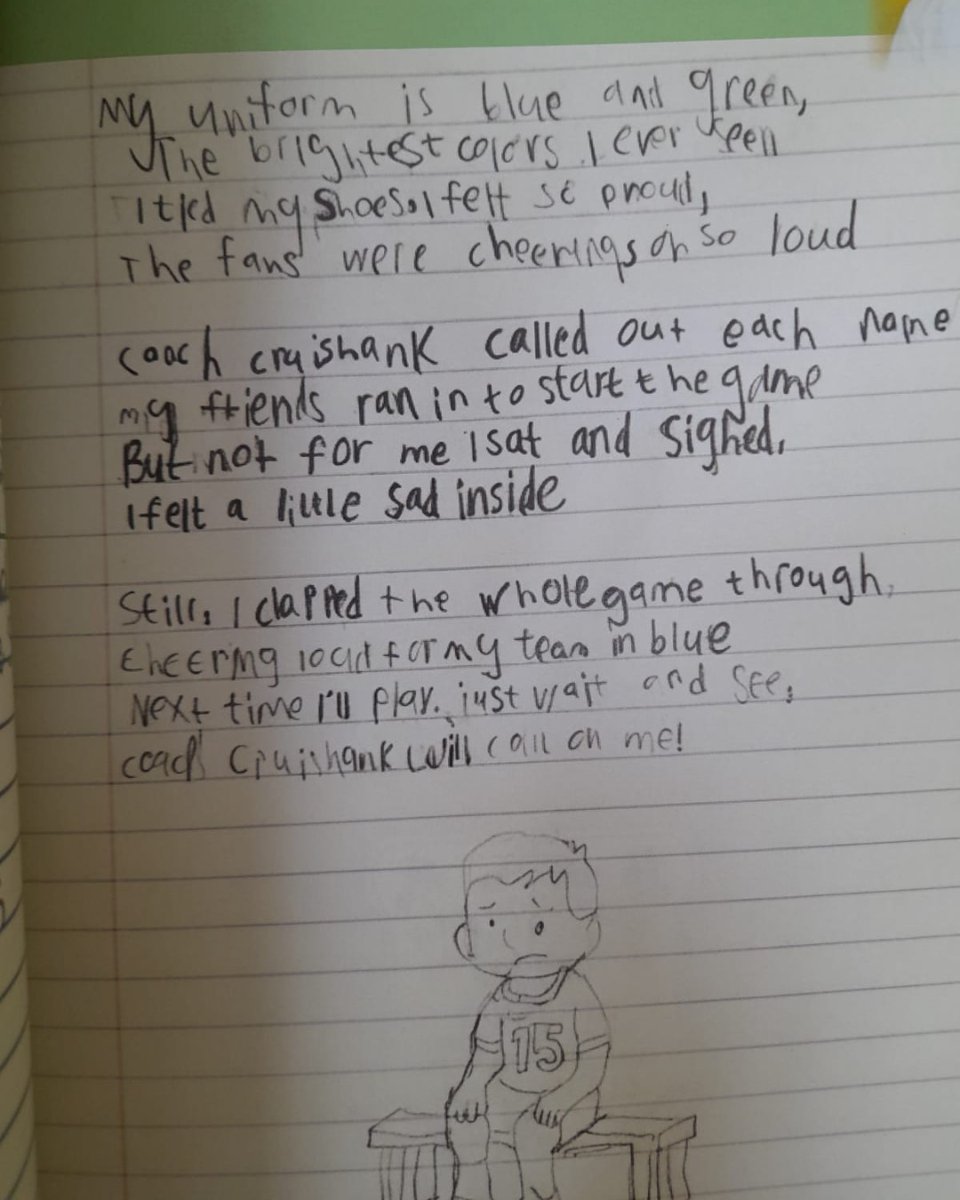 My uniform is blue and green,
The brightest colors I ever seen
I tied my shoes. I felt so proud,
The fans were cheerings oh so loud
coach cruishank called out each name
my friends ran in to start the game
But not for me I sat and sighed,
I felt a little sad inside
Still, I clapped the whole game through,
cheering loud for my team in blue
Next time I'll play. just wait and see,
coach Cruishank will call on me!
15